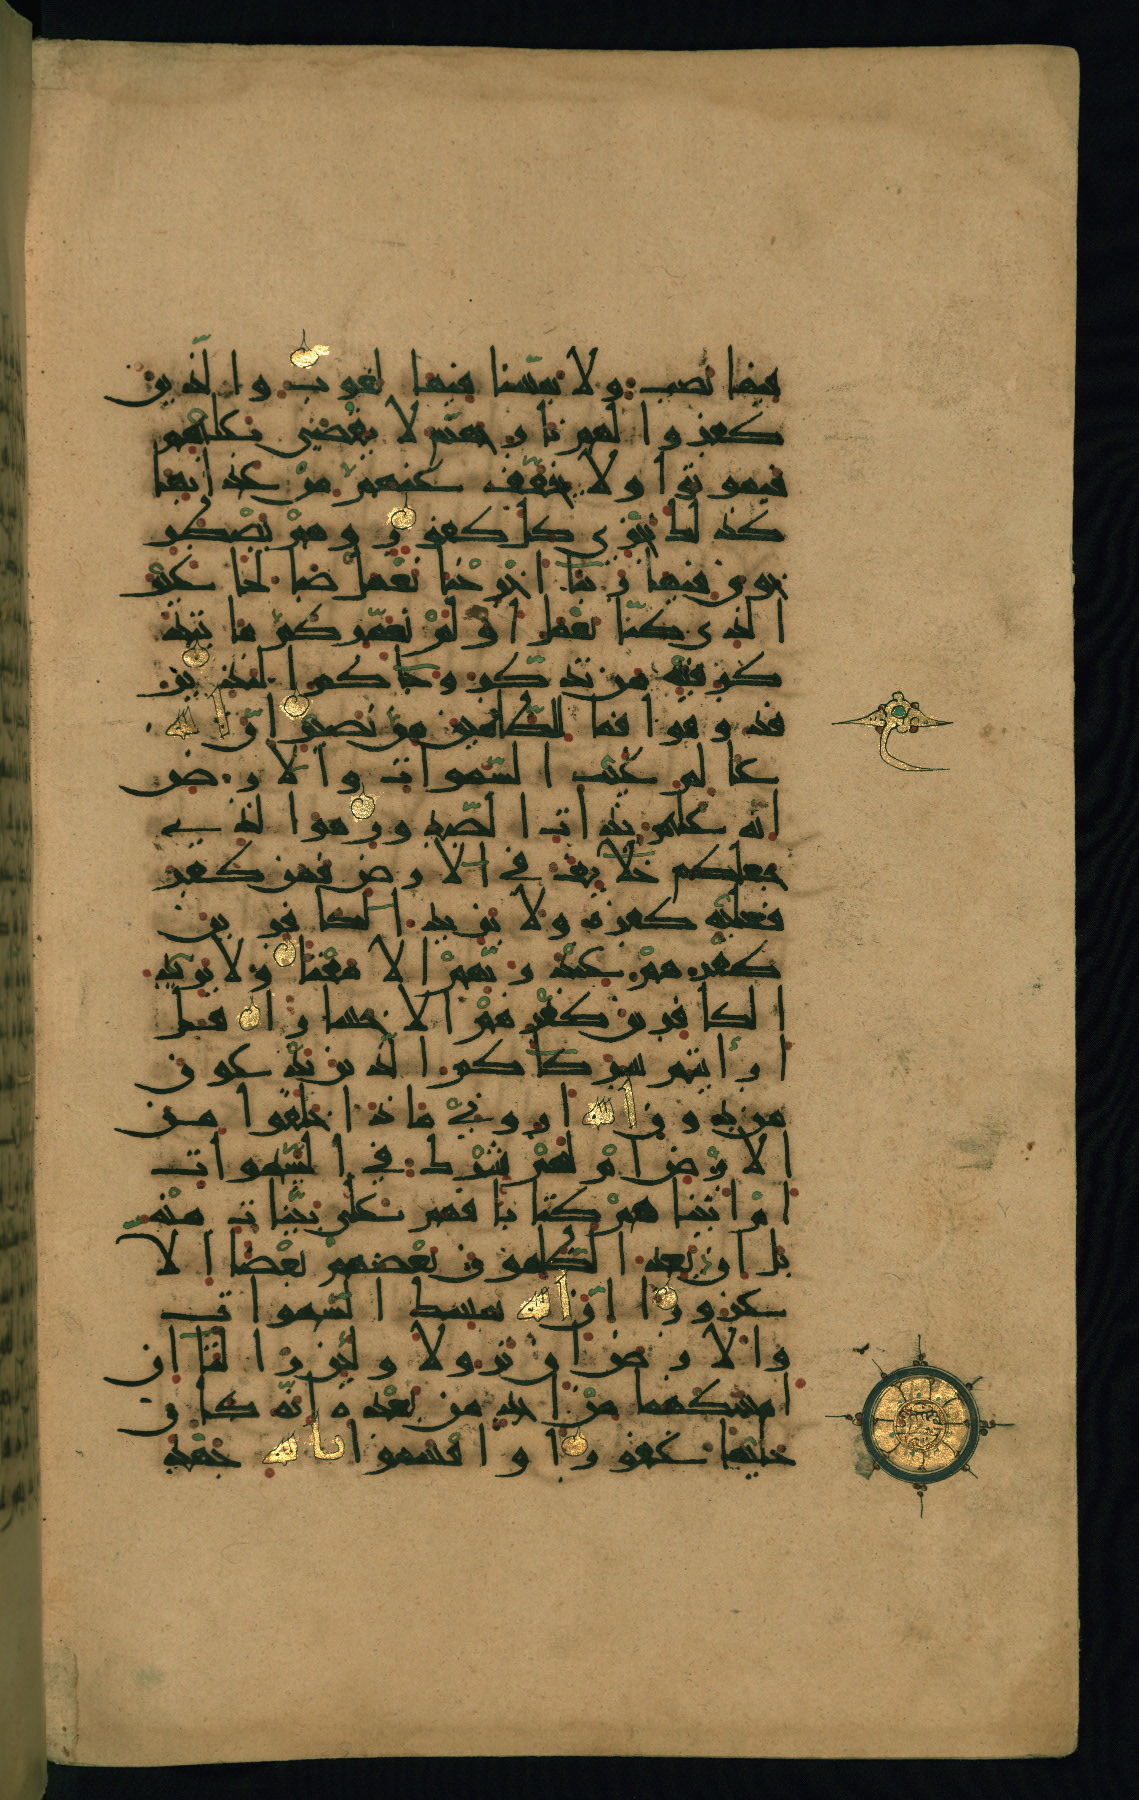 فيها نصب ولا يمسنا فيها لغوب والذين
كفروا لهم نار جهنم لا يقضى عليهم
فيموتوا ولا يخفف عنهم من عذابها
كذلك نجزى كل كفور وهم يصطر
خون فيها ربنا اخرجنا نعمل صالحا غير
الذى كنا نعمل اولم نعمركم ما يتذ
كر فيه من تذكر وجاكم النذير
فذوقوا فما للظالمين من نصير ان الله
عالم غيب السموات والارض
انه عليم بذات الصدور هو الذي
جعلكم خلايف في الارض فمن كفر
فعليه كفره ولا يزيد الكافرين
كفرهم عند ربهم الا مقتا ولا يزيد
الكافرين كفرهم الا خسارا قل
ارايتم شركاكم الذين تدعون
من دون الله اروني ماذا خلقوا من
الارض ام لهم شرك في السموات
ام اتيناهم كتابا فهم على بينات منه
بل ان يعد الظلمون بعضهم بعضا الا
غرورا ان الله يمسك السموات
والارض ان تزولا ولين زالتا ان
امسكهما من احد من بعده انه كان
حليما غفورا واقسموا بالله جهد